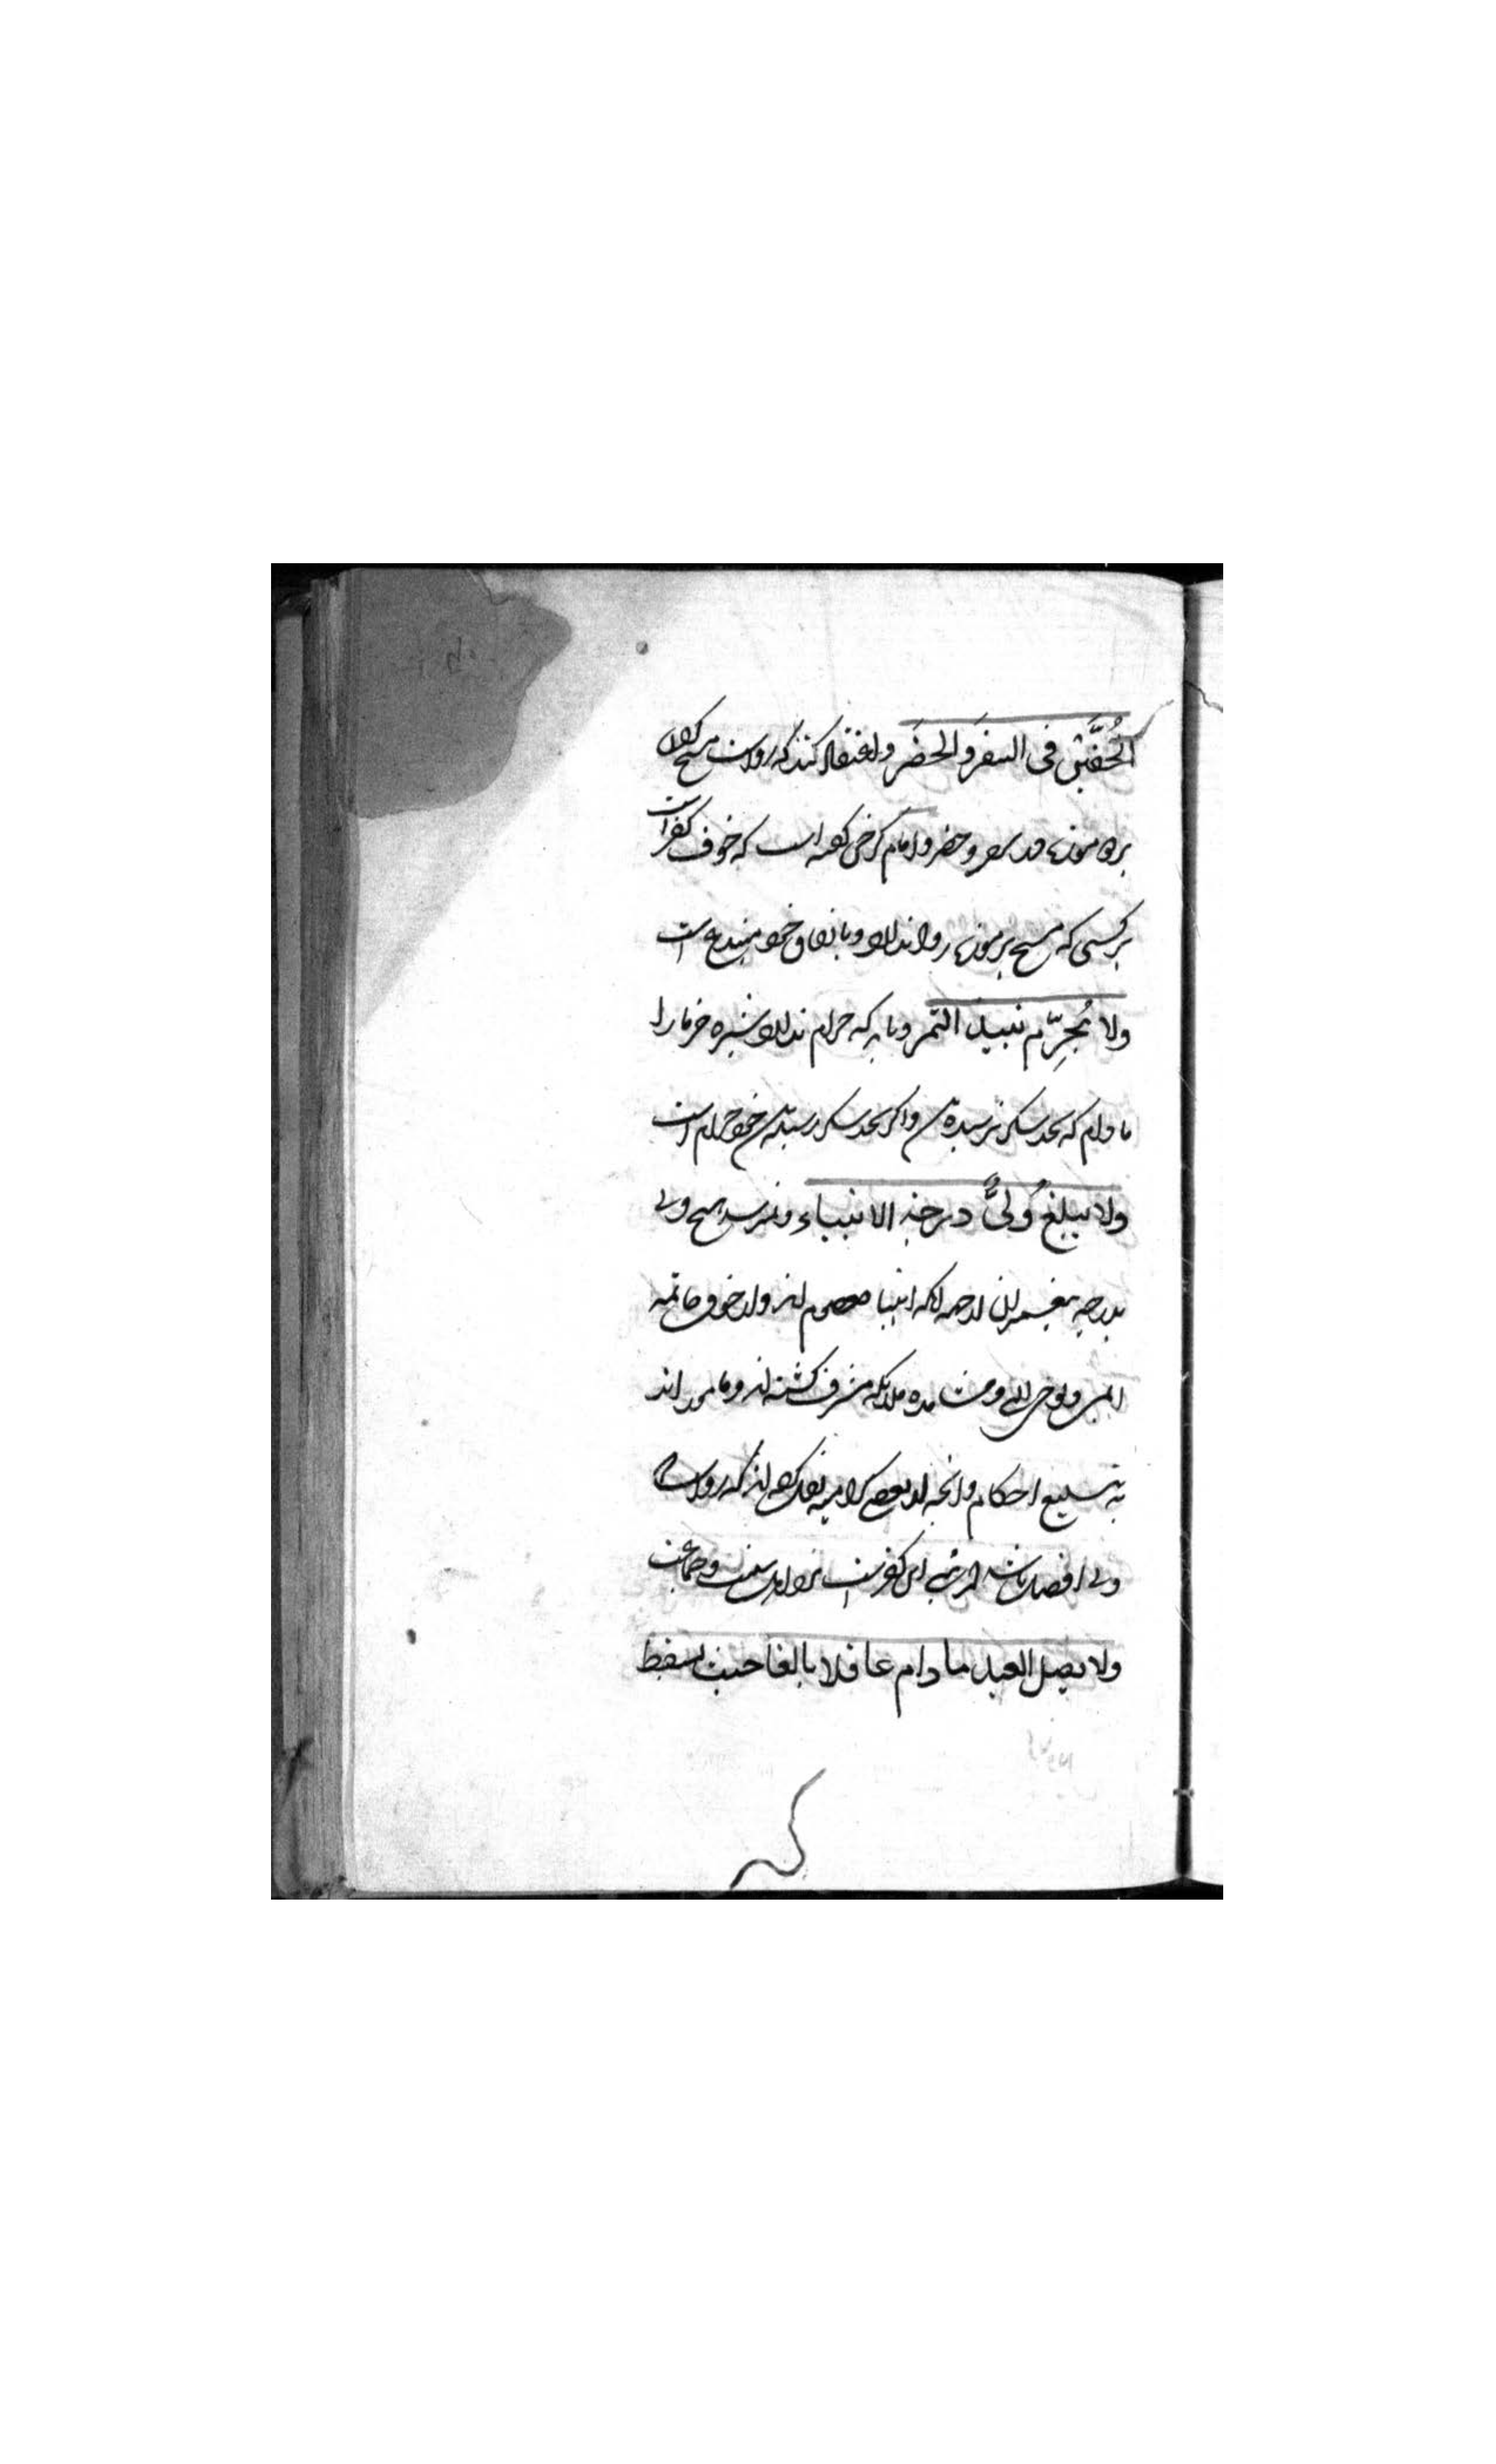 الخُفَّیْن فی السفرَ والحضَر و اعتقاد کنند که رواست مسح کردن
بر موزها در سفر و حضر و امام کرخی گفته است که خوف کفر است
بر کسی که مسح بر موزها روا ندارد و باتفاق خود مبتدع است
ولا نُحرِّم نبیذ التمر و باید که حرام ندارد شیره خرما را
مادام که بحد سکر نرسیده و اگر بحد سکر رسید خود حرام است
ولا یبلغ وَلیٌّ درجة الانبیاء و نرسد هیچ ولی
بدرجه پیغمبران از جهة آنکه انبیا معصوم اند و از خوف خاتمه
ایمن و بوحی الهی و مشاهده ملائکه مشرف گشته اند و مامور اند
به تبلیغ احکام و آنچه از بعضی کرامیه نقل کرده اند که رواست که
ولی افضل باشد از نبی این کفر است نزد اهل سنت و جماعت
ولا یصل العبد مادام عاقلا بالغا حیث یسقط